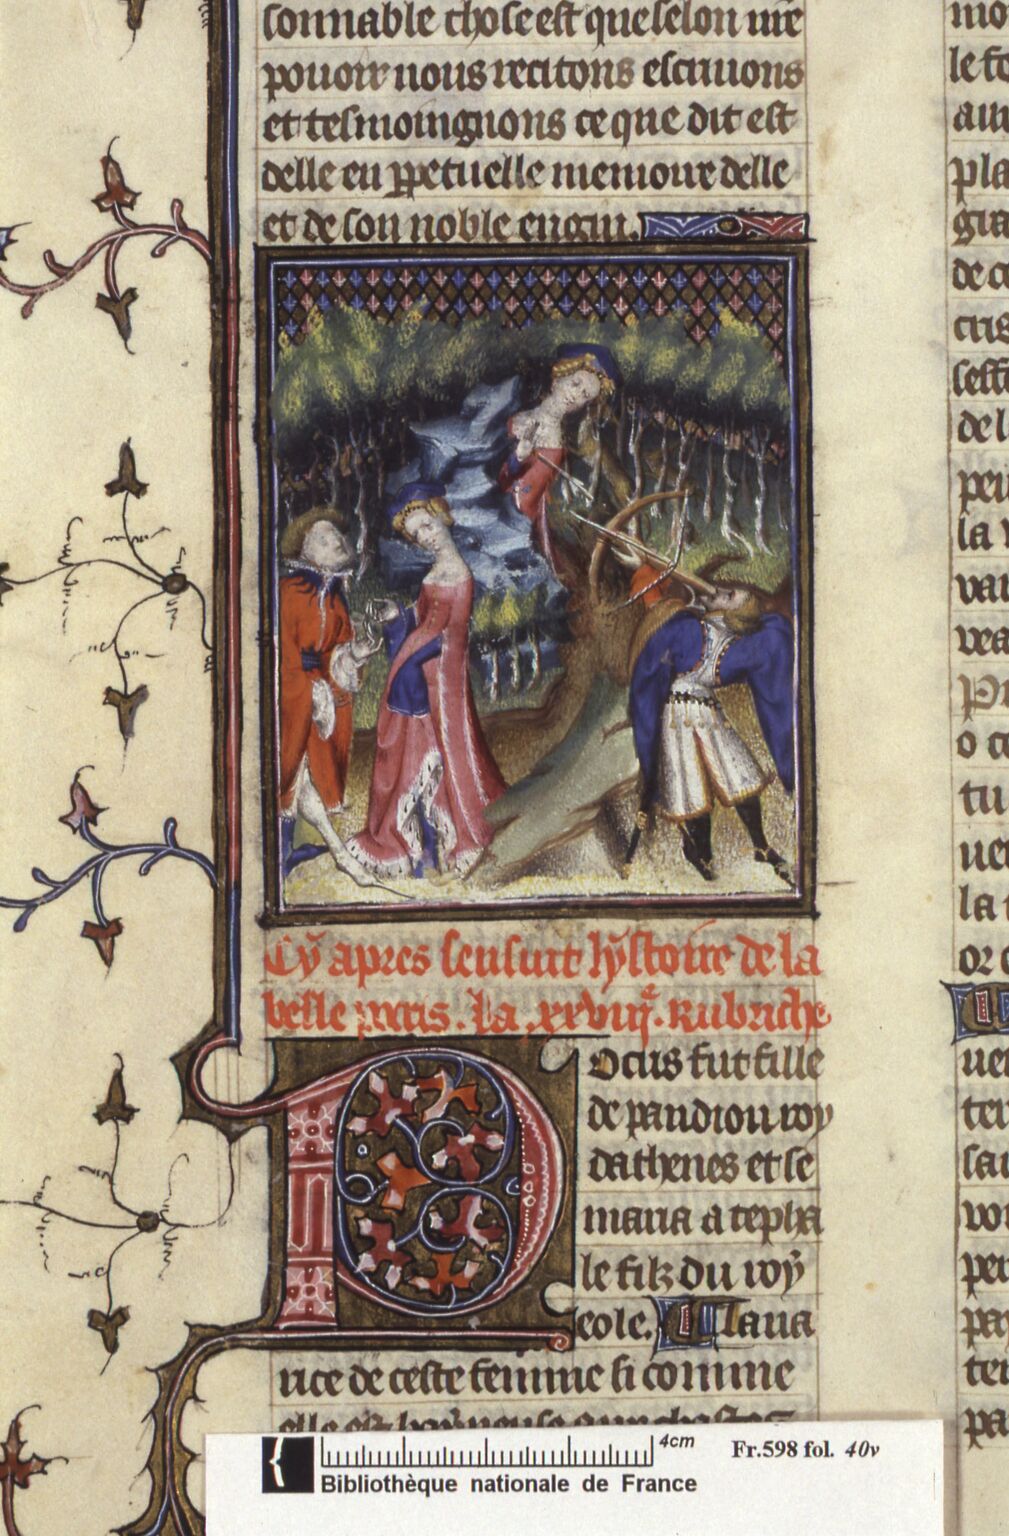 sonnable chose est que selon nr̃e
pouoir nous recitons escriuons
et tesmoingnons ce que dit est
delle en ꝑpetuelle memoire delle
et de son noble engin.
Cy apres sensuit hystoire de la
belle pocris. La .xxviiiᵉ. Rubriche
Pocris fut fille
de pandion roy
dathenes et se
maria a cepha
le filz du roy
eole. Laua
rice de ceste femme si comme
mo
le fe
pla
gra
de ce
cris
de l
la v
vea
o ce
tu
la t
or c
ter
sai
vo
per
ter
pa
4cm
Fr.598 fol. 40v
Bibliothèque nationale de France